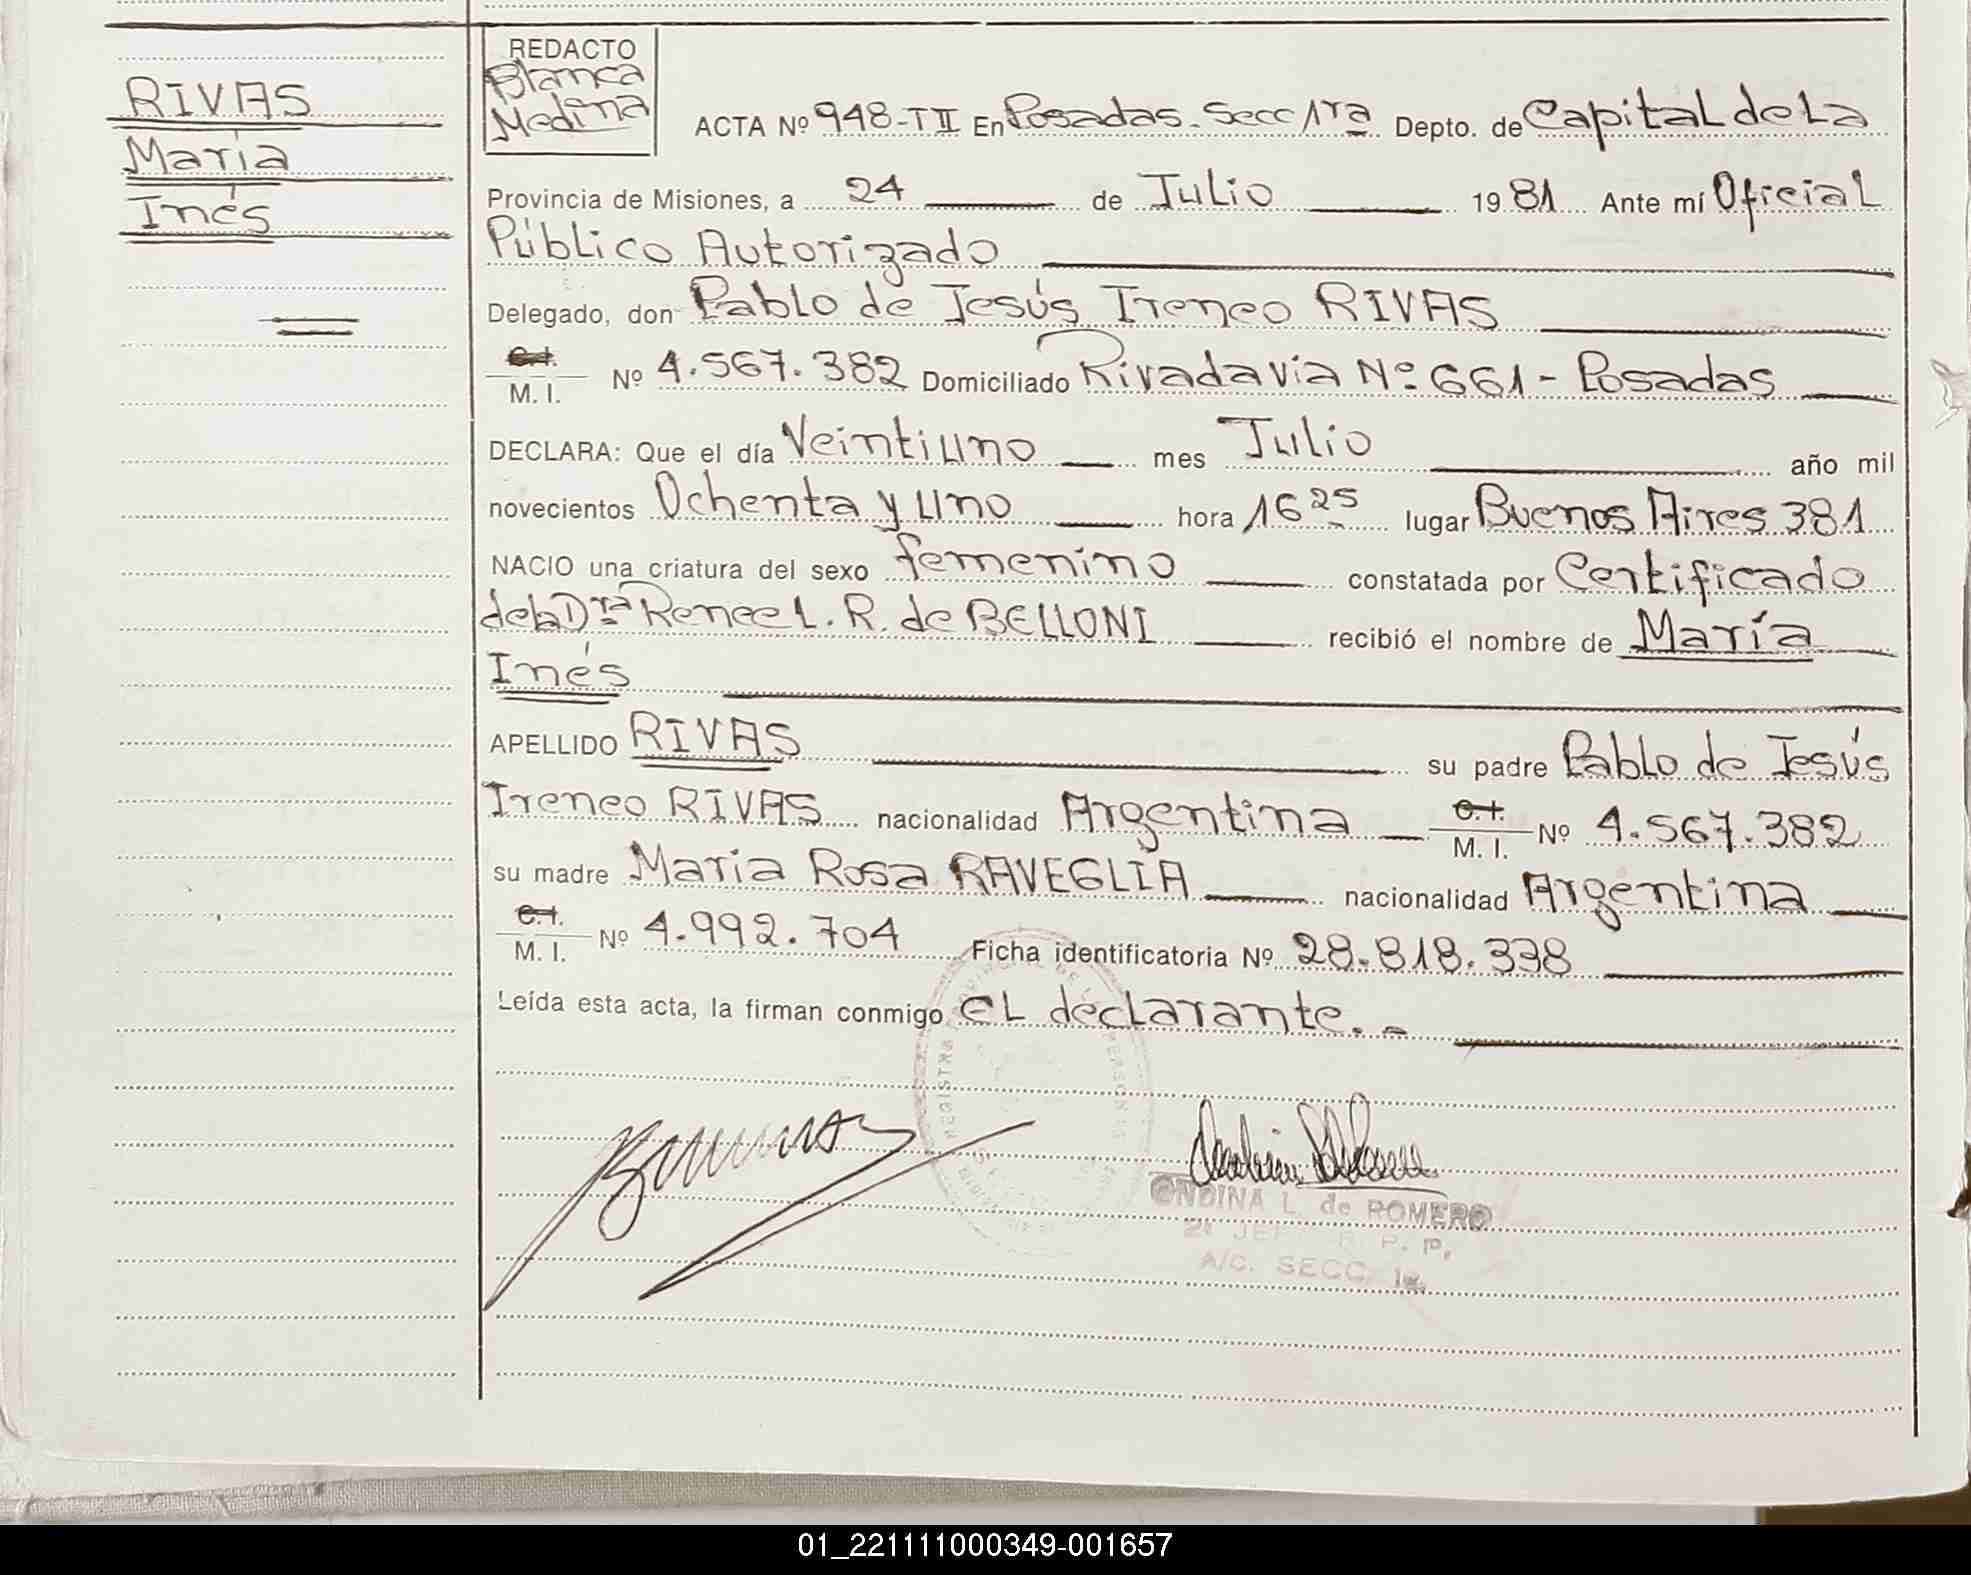 RIVAS
María
Inés
REDACTO
Blanca
Medina
ACTA Nº 948-TII En Posadas. Secc 1ra Depto. de Capital de La
Provincia de Misiones, a 24 de Julio 1981 Ante mí Oficial
Público Autorizado
Delegado, don Pablo de Jesús Ireneo RIVAS
C.I. M. I. Nº 4.567.382 Domiciliado Rivadavia Nº 661 - Posadas
DECLARA: Que el día Veintiuno mes Julio año mil
novecientos Ochenta y uno hora 16 25 lugar Buenos Aires 381
NACIO una criatura del sexo femenino constatada por Certificado
de la Dra Renee L. R. de BELLONI recibió el nombre de María
Inés
APELLIDO RIVAS su padre Pablo de Jesús
Ireneo RIVAS nacionalidad Argentina C.I. M. I. Nº 4.567.382
su madre Maria Rosa RAVEGLIA nacionalidad Argentina
C.I. M. I. Nº 4.992.704 Ficha identificatoria Nº 28.818.338
Leída esta acta, la firman conmigo el declarante. -
ONDINA L. de ROMERO
2º JEF R. P. P.
A/C. SECC. 1a.
01_221111000349-001657